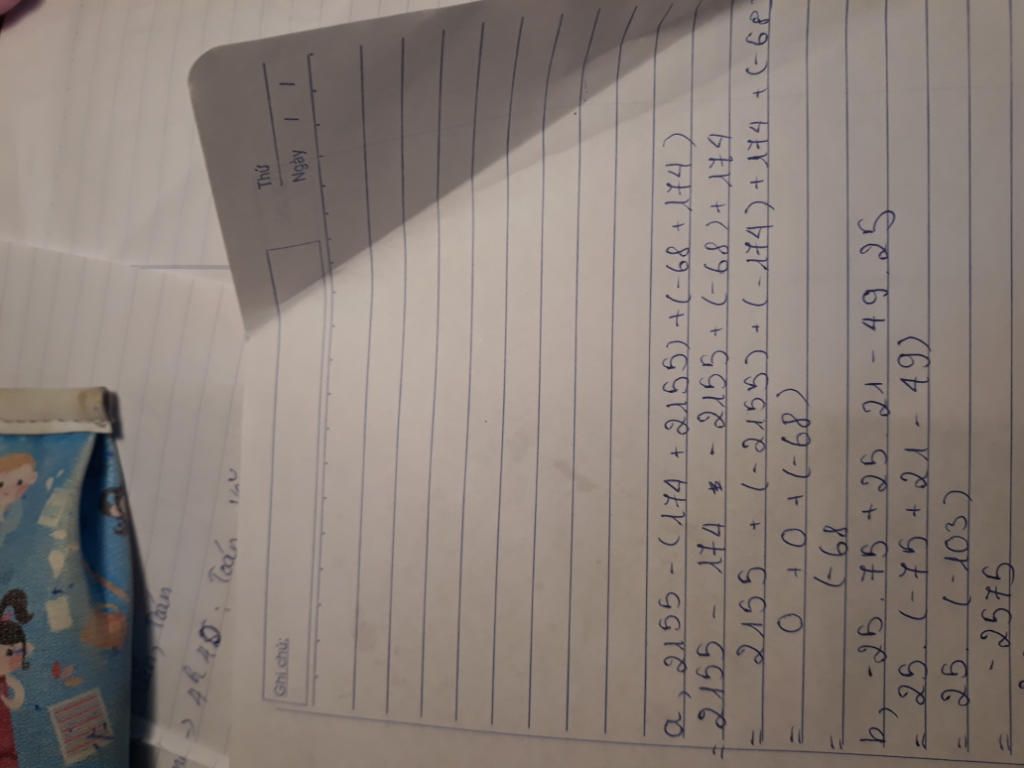 Thứ
Ngày
Ghi chú:
a, 2155 - (174 + 2155) + (-68 + 174)
= 2155 - 174 - 2155 + (-68) + 174
= 2155 + (-2155) + (-174) + 174 + (-68
= 0 + 0 + (-68)
= (-68
b, -25 . 75 + 25 . 21 - 49 . 25
= 25 . (-75 + 21 - 49)
= 25 . (-103)
= -2575
Toán